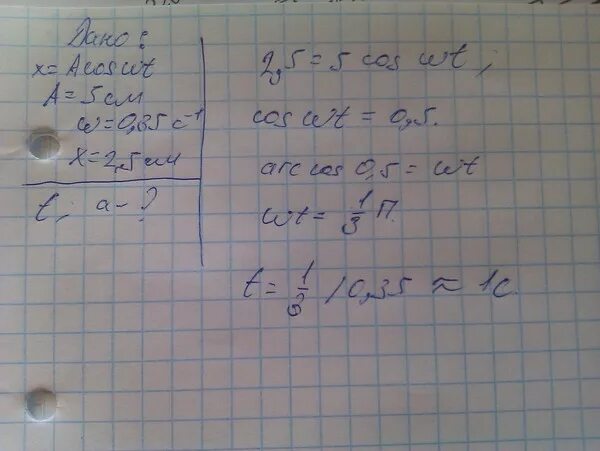 Дано:
x = A cos wt
A = 5 см
w = 0,35 с⁻¹
x = 2,5 см
t; a - ?
2,5 = 5 cos wt;
cos wt = 0,5.
arc cos 0,5 = wt
wt = 1/3 П.
t = 1/3 / 0,35 ≈ 1с.